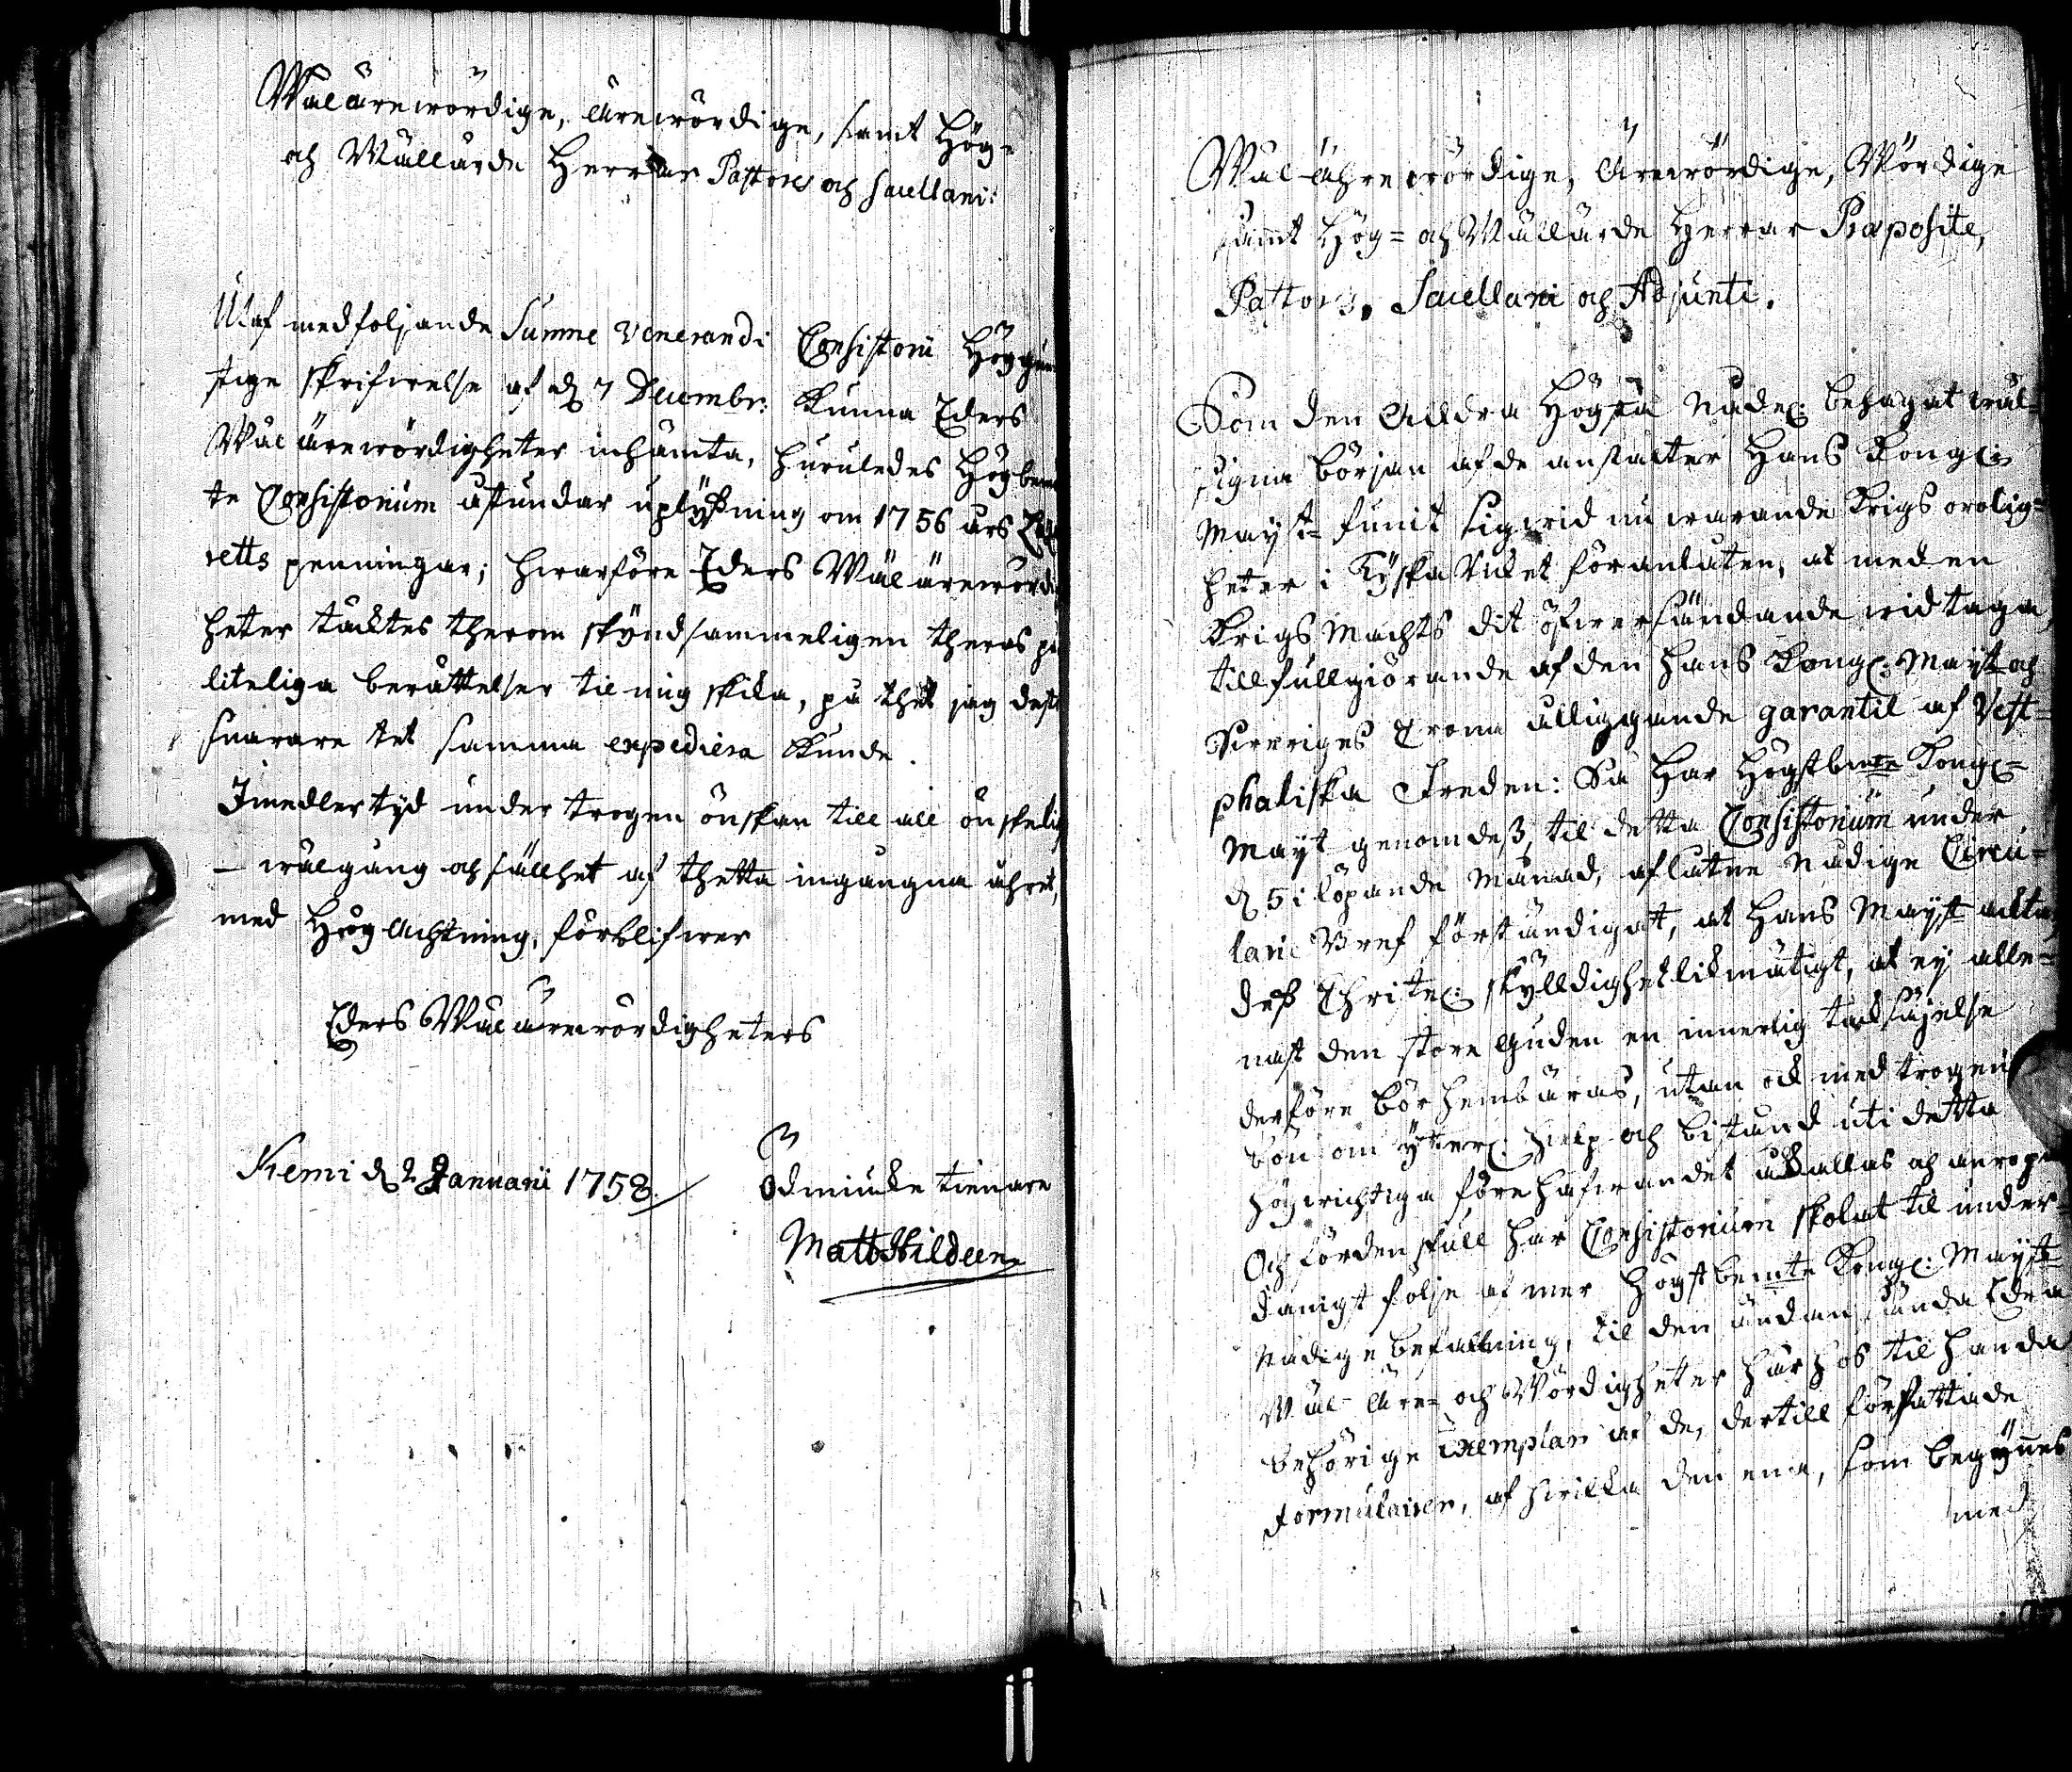 Wälärewördige, Ärewördige, samt Hög-
och Wällärde Herrar Pastores och Sacellani:
Utaf medfoljande Summe Venerandi Consistorii Höggun
stige skrifwelse af d. 7 Decembr: kunna Eders
Wälärewördigheter inhämta, huruledes Högbem
te Consistorium åstundar uplysning om 1756 års
retts penningar; hwarföre Eders Wälärewördig
heter täcktes therom skyndsammeligen theras på
liteliga berättelser til mig skicka, på thet jag dest
snarare tet samma expediera kunde.
Imedlertyd under trogen önskan till all önskelig
- wälgång och sällhet af thetta ingångna åhret,
med Högachtning, förblifwer
Eders Wälärewördigheters
Kemi d. 2 Januarii 1758.
Ödmiuke tienare
Matt Hildeen
Wäl-Ährewördige, Ärewördige, Wördige
samt Hög= och Wällärde Herrar Præposite,
Pastores, Sacellani och Adjuncti.
Som den Alldra Högsta Nådel: behagat wäl-
signa början af de anstalter Hans Kongl:
Mayt funnit sig wid nu warande Krigs orolig=
heter i Tyska Riket föranlåten, at med en
Krigs Machts dit öfwersändande widtaga,
till fullgiörande af den Hans Kongl: Mayt och
Swerriges Crona åliggande garantie af Vest=
phaliska Freden: Så har Högstbemte Kongl=
Mayt genom deß, til detta Consistorium under
d. 5 i löpande Månad, aflåtne Nådige Circu=
lair Bref förständigat, at Hans Mayt acktar
deß Christel: skylldighet likmätigt, at ej alle=
nast den store Guden en innerlig tacksäjelse
derföre bör hembäras, utan ock med trogen
bön om ytterl: hielp och bistånd uti detta
högwichtiga förehafwandet åkallas och anropa
Och fördenskull har Consistorium skolat til under
dånigt följe af mer Högstbemte Kongl: Mayt
Nådige befallning, til den ändan sända Edra
Wäl- Äre= och Wördigheter härhos tilhanda
behörige Exemplar af de, dertill författade
Formulairer, af hwilka den ena, som begynnes
med